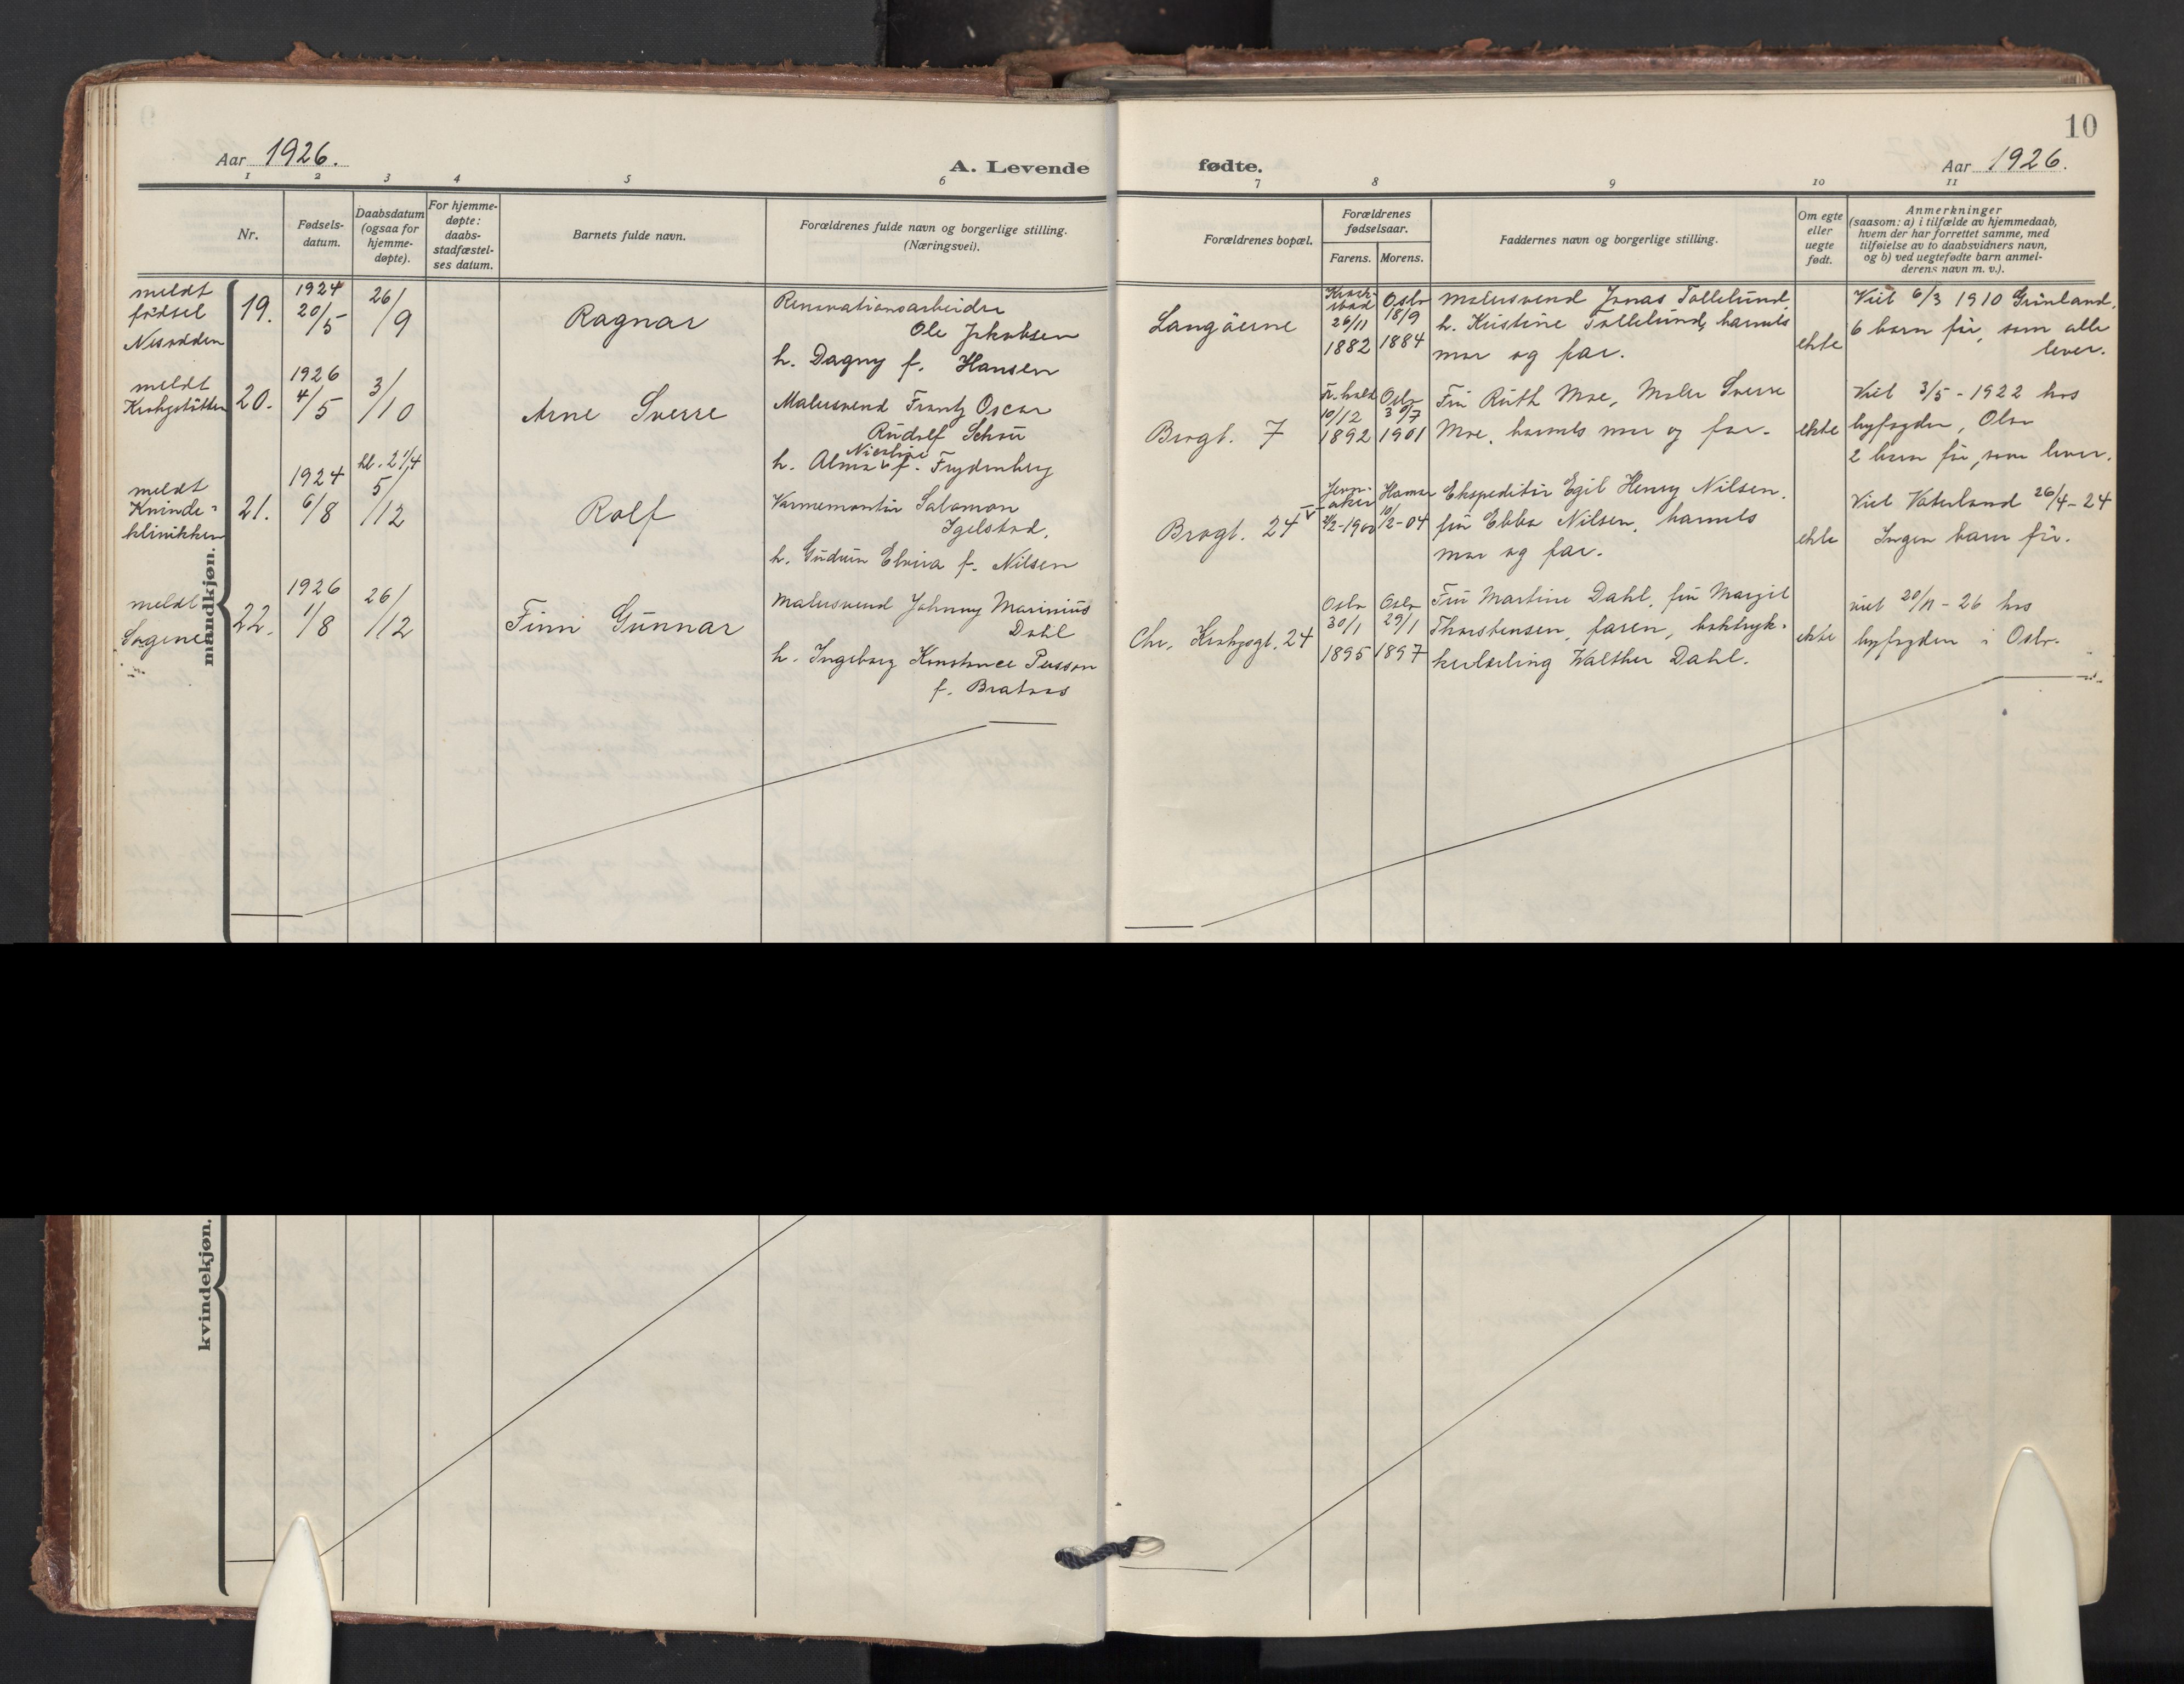 10
Aar 1926.
A. Levende
fødte.
Aar 1926.
1 2 3 4 5 6 7 8 9 10 11
Nr.
Fødsels-
datum.
Daabsdatum
(ogsaa for
hjemme-
døpte).
For hjemme-
døpte:
daabs-
stadfæstel-
ses datum.
Barnets fulde navn.
Forældrenes fulde navn og borgerlige stilling.
(Næringsvei).
Forældrenes bopæl.
Forældrenes
fødselsaar.
Farens. Morens.
Faddernes navn og borgerlige stilling.
Om egte
eller
uegte
født.
Anmerkninger
(saasom: a) i tilfælde av hjemmedaab,
hvem der har forrettet samme, med
tilføielse av to daabsvidners navn,
og b) ved uegtefødte barn anmel-
derens navn m. v.).
mandkjøn.
meldt
fødsel
Nesodden
19.
1924
20/5
26/9
Ragnar
Renovationsarbeider
Ole Jakobsen
h. Dagny f. Hansen
Langøerne
Kraak-
stad
26/11
1882
Oslo
18/9
1884
Malersvend Jonas Tollelund,
h. Kristine Tollelund, barnets
mor og far.
ekte
Viet 6/3 1910 Grønland,
6 barn før, som alle
lever.
meldt
Krohgstøtten
20.
1926
4/5
3/10
Arne Sverre
Malersvend Frantz Oscar
Rudolf Schou
h. Alma Nicoline f. Frydenberg
Brogt. 7
Fr.hald
10/12
1892
Oslo
30/7
1901
Fru Ruth Moe, Maler Sverre
Moe, barnets mor og far.
ekte
Viet 3/5 - 1922 hos
byfogden, Oslo
2 barn før, som lever.
meldt
Kvinde-
klinikken
21.
1924
6/8
kl. 2 1/4
5/12
Rolf
Varmemontør Salomon
Igelstad,
h. Gudrun Elvira f. Nilsen
Brogt. 24 V
Jevn-
aker
2/2-1900
Hamar
10/2-04
Ekspeditør Egil Henry Nilsen,
fru Ebba Nilsen, barnets
mor og far.
ekte
Viet Vaterland 26/4-24
Ingen barn før.
meldt
Sagene
22.
1926
1/8
26/12
Finn Gunnar
Malersvend Johnny Marinius
Dahl
h. Ingeborg Konstance Persson
f. Brataas
Chr. Krohgsgt. 24
Oslo
30/1
1895
Oslo
29/1
1897
Fru Martine Dahl, fru Margit
Thorstensen, faren, boktryk-
kerlærling Walther Dahl.
ekte
viet 20/11 - 26 hos
byfogden i Oslo.
kvindekjøn.